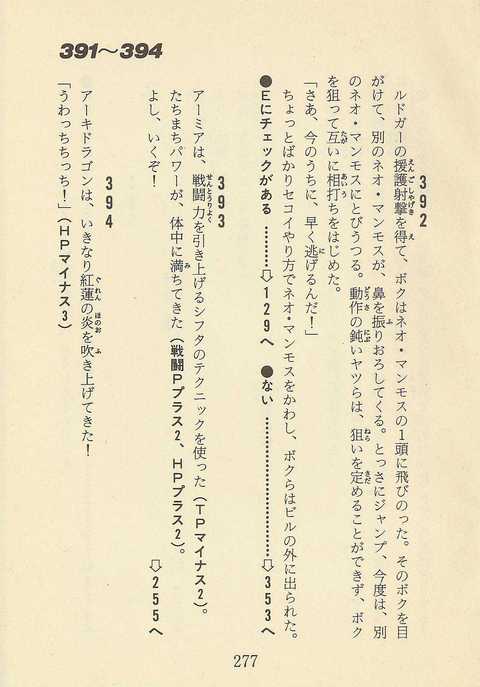 391〜394
392
ルドガーの援護射撃を得て、ボクはネオ・マンモスの1頭に飛びのった。そのボクを目
がけて、別のネオ・マンモスが、鼻を振りおろしてくる。とっさにジャンプ、今度は、別
のネオ・マンモスにとびうつる。動作の鈍いヤツらは、狙いを定めることができず、ボク
を狙って互いに相打ちをはじめた。
「さあ、今のうちに、早く逃げるんだ！」
ちょっとばかりセコイやり方でネオ・マンモスをかわし、ボクらはビルの外に出られた。
●Eにチェックがある ………⇨129へ ●ない ………………………⇨353へ
393
アーミアは、戦闘力を引き上げるシフタのテクニックを使った（TPマイナス2）。
たちまちパワーが、体中に満ちてきた（戦闘Pプラス2、HPプラス2）。
よし、いくぞ！ ⇨255へ
394
アーキドラゴンは、いきなり紅蓮の炎を吹き上げてきた！
「うわっちっちっち！」（HPマイナス3）
277